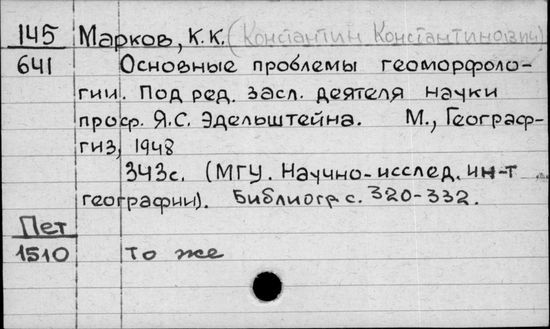 145 Марков, К.К. (Константин Константинович)
641 Основные проблемы геоморфоло-
гии. Под ред. засл. деятеля науки
проф. Я.С. Эдельштейна. М., Географ-
гиз, 1948
343с. (МГУ. Научно-исслед. ин-т
географии). Библиогр с. 320-332.
Пет
1510 То же